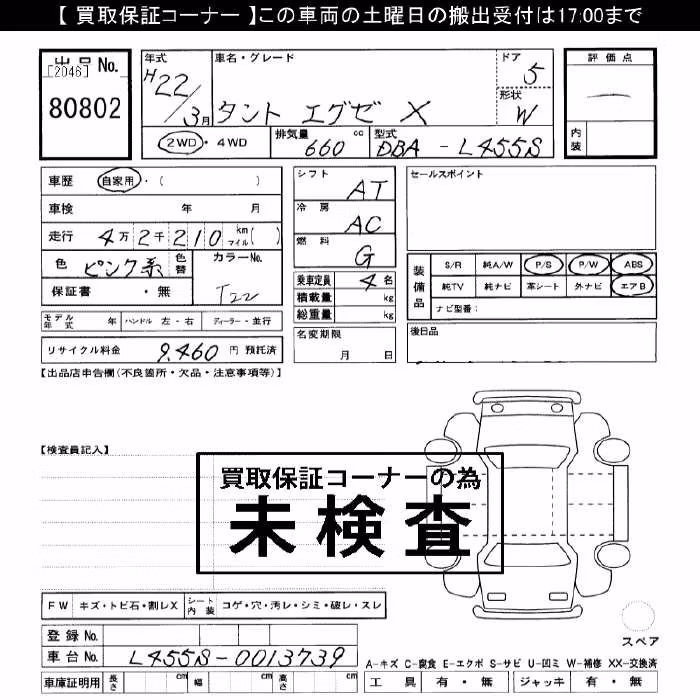 【 買取保証コーナー 】この車両の土曜日の搬出受付は17:00まで
出品 No.
[2046]
80802
年式 H22/3月
車名・グレード
タント エグゼ X
ドア 5
形状 W
評価点
—
内装
2WD・4WD
排気量 660 cc
型式 DBA - L455S
車歴 自家用・( )
車検 年 月
走行 4万2千210 km マイル( )
色 ピンク系 色替 カラーNo. T22
保証書 ・ 無
モデル年式 年 ハンドル 左・右 ディーラー・並行
リサイクル料金 9,460 円 預託済
シフト AT
冷房 AC
燃料 G
乗車定員 4 名
積載量 kg
総重量 kg
名変期限 月 日
セールスポイント
装備品
S/R 純A/W P/S P/W ABS
純TV 純ナビ 革シート 外ナビ エアB
ナビ型番:
後日品
【出品店申告欄(不良箇所・欠品・注意事項等)】
【検査員記入】
買取保証コーナーの為
未検査
FW キズ・トビ石・割レX シート内装 コゲ・穴・汚レ・シミ・破レ・スレ
登録 No.
車台 No. L455S-0013739
車庫証明用 長さ cm 幅 cm 高さ cm
スペア
A-キズ C-腐食 E-エクボ S-サビ U-凹ミ W-補修 XX-交換済
工具 有・無 ジャッキ 有・無